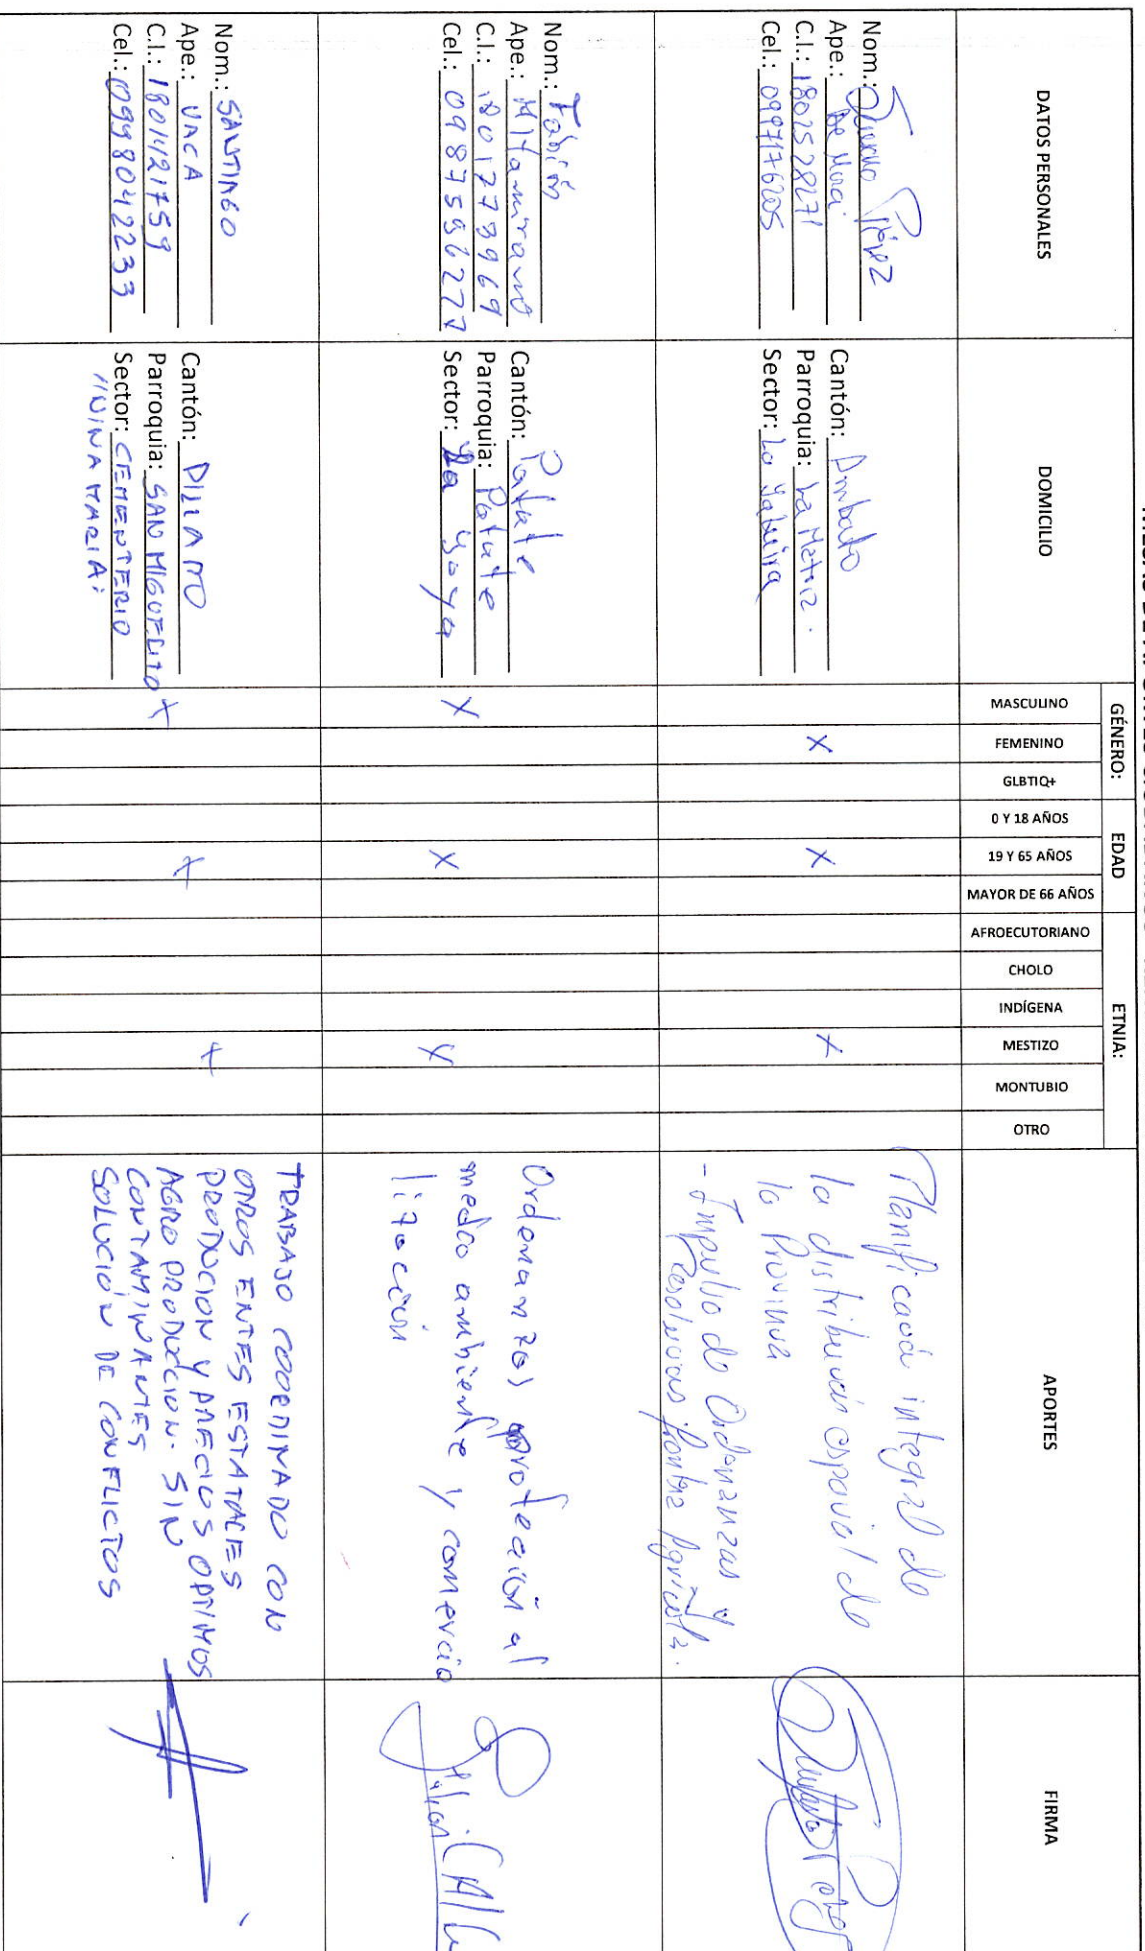 DATOS PERSONALES
DOMICILIO
GÉNERO:
MASCULINO
FEMENINO
GLBTIQ+
EDAD
0 Y 18 AÑOS
19 Y 65 AÑOS
MAYOR DE 66 AÑOS
ETNIA:
AFROECUTORIANO
CHOLO
INDÍGENA
MESTIZO
MONTUBIO
OTRO
APORTES
FIRMA
Nom.: Pérez
Ape.: De Mora
C.I.: 1802528271
Cel.: 0997176205
Cantón: Ambato
Parroquia: La Matriz.
Sector: La Yahuira
X
X
X
Planificación integral de
la distribución espacial de
la Provincia
- Impulso de Ordenanzas y
Resoluciones frontera Agrícola.
Nom.: Fabián
Ape.: Altamirano
C.I.: 1801279969
Cel.: 0987556277
Cantón: Patate
Parroquia: Patate
Sector: La Joya
X
X
X
Ordenanzas protección al
medio ambiente y comercio
lización
Nom.: SANTIAGO
Ape.: VACA
C.I.: 1801421759
Cel.: 0998042233
Cantón: PILLARO
Parroquia: SAN MIGUELITO
Sector: CEMENTERIO
"NINA MARIA"
X
X
X
TRABAJO COORDINADO CON
OTROS ENTES ESTATALES
PRODUCION Y PRECIOS OPTIMOS
AGRO PRODUCCION. SIN
CONTAMINANTES
SOLUCIÓN DE CONFLICTOS